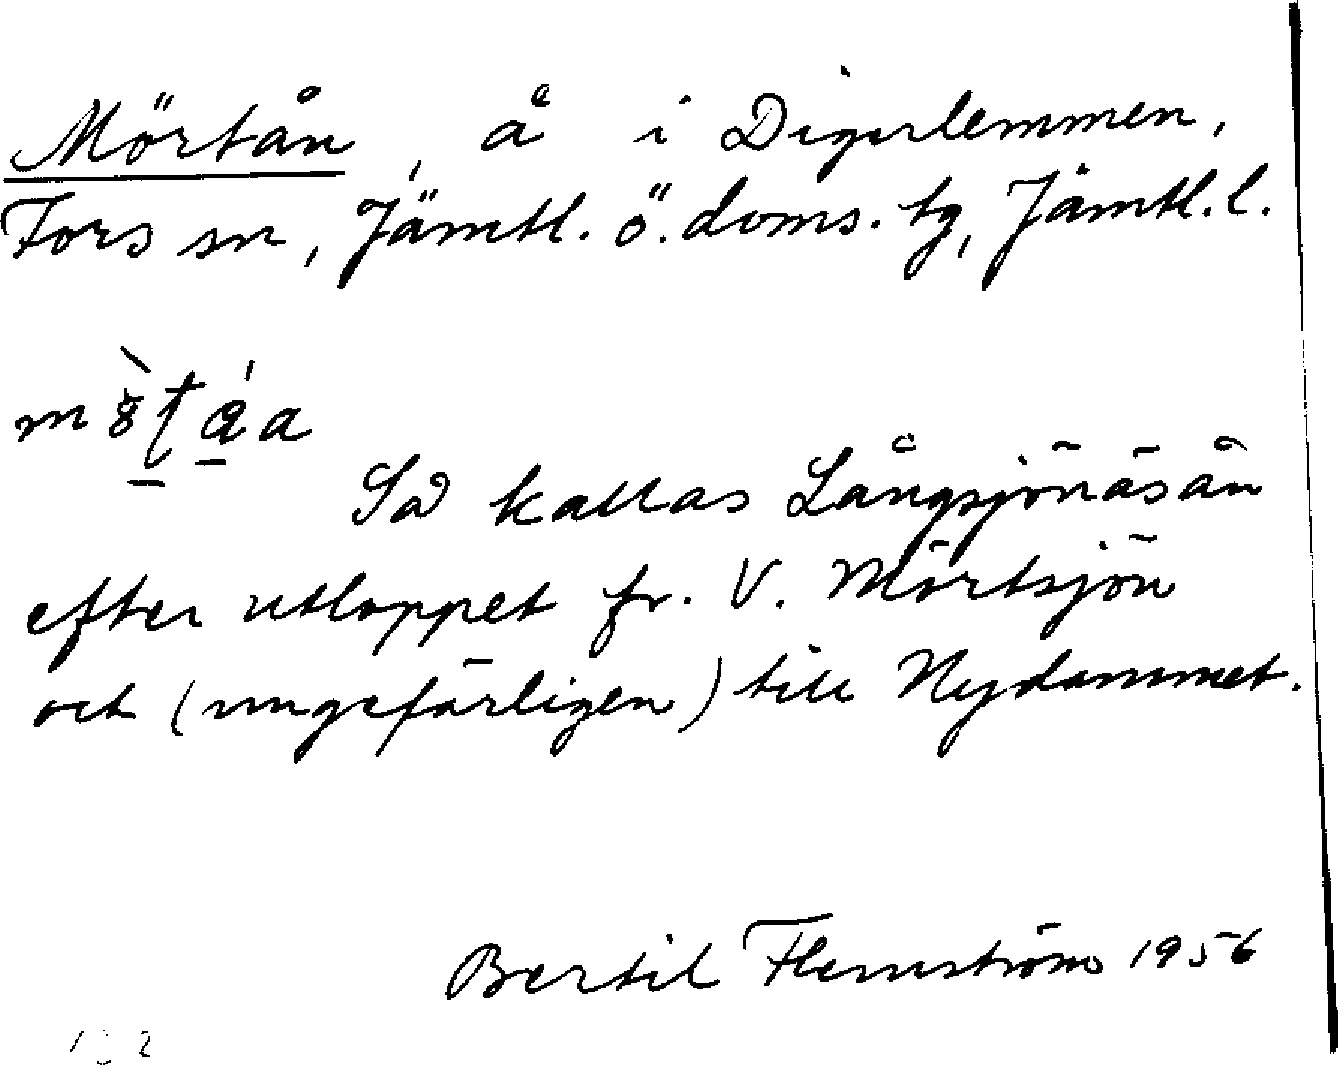 Mörtån, å i Digerlemmen,
Fors sn, Jämtl. ö. doms. tg, Jämtl. l.
Så kallas Långsjönäsån
efter utloppet fr. V. Mörtsjön
och (ungefärligen) till Nydammet.
Bertil Flemström 1956